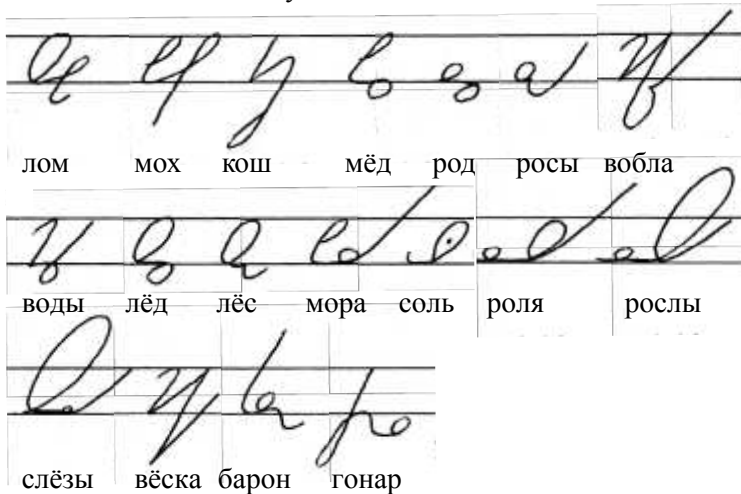 лом мох кош мёд род росы вобла
воды лёд лёс мора соль роля рослы
слёзы вёска барон гонар